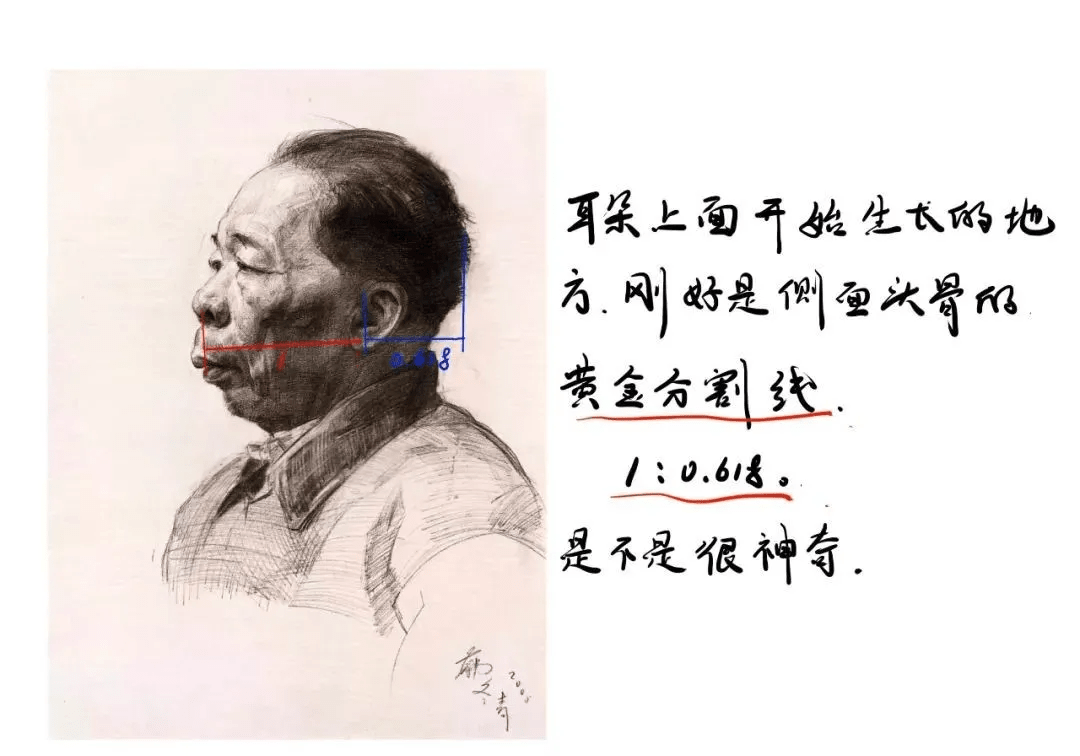 1
0.618
耳朵上面开始生长的地
方.刚好是侧面头骨的
黄金分割线.
1:0.618。
是不是很神奇.